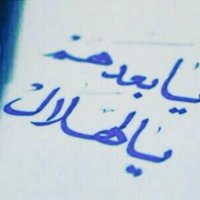 يا بعدهم
يالهلال